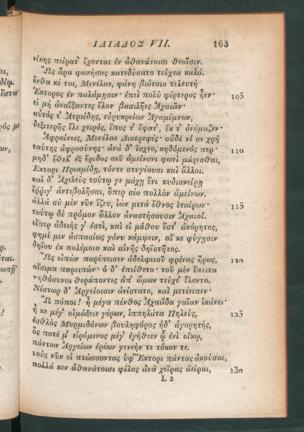 ΙΛΙΑΔΟΣ VII. 163
νίκης πείρατ᾽ ἔχονται ἐν ἀθανάτοισι θεοῖσιν.
Ὣς ἄρα φωνήσας κατεδύσατο τεύχεα καλά.
ἔνθα κέ τοι, Μενέλαε, φάνη βιότοιο τελευτὴ
Ἕκτορος ἐν παλάμῃσιν· ἐπεὶ πολὺ φέρτερος ἦεν· 105
εἰ μὴ ἀναΐξαντες ἕλον βασιλῆες Ἀχαιῶν·
αὐτός τ᾽ Ἀτρείδης, εὐρυκρείων Ἀγαμέμνων,
δεξιτερῆς ἕλε χειρός, ἔπος τ᾽ ἔφατ᾽, ἔκ τ᾽ ὀνόμαζεν·
Ἀφραίνεις, Μενέλαε Διοτρεφές· οὐδέ τί σε χρὴ
ταύτης ἀφροσύνης· ἀνὰ δ᾽ ἴσχεο, κηδόμενός περ· 110
μηδ᾽ ἔθελ᾽ ἐξ ἔριδος σεῦ ἀμείνονι φωτὶ μάχεσθαι,
Ἕκτορι Πριαμίδῃ, τόντε στυγέουσι καὶ ἄλλοι.
καὶ δ᾽ Ἀχιλεὺς τούτῳ γε μάχῃ ἔνι κυδιανείρῃ
ἔρριγ᾽ ἀντιβολῆσαι, ὅπερ σέο πολλὸν ἀμείνων.
ἀλλὰ σὺ μὲν νῦν ἵζευ, ἰὼν μετὰ ἔθνος ἑταίρων· 115
τούτῳ δὲ πρόμον ἄλλον ἀναστήσουσιν Ἀχαιοί.
εἴπερ ἀδειής γ᾽ ἐστί, καὶ εἰ μόθου ἔστ᾽ ἀκόρητος,
φημί μιν ἀσπασίως γόνυ κάμψειν, αἴ κε φύγῃσιν
δηΐου ἐκ πολέμοιο καὶ αἰνῆς δηϊοτῆτος.
Ὣς εἰπὼν παρέπεισεν ἀδελφειοῦ φρένας ἥρως, 120
αἴσιμα παρειπών· ὁ δ᾽ ἐπείθετο· τοῦ μὲν ἔπειτα
γηθόσυνοι θεράποντες ἀπ᾽ ὤμων τεύχε᾽ ἕλοντο.
Νέστωρ δ᾽ Ἀργείοισιν ἀνίστατο, καὶ μετέειπεν·
Ὢ πόποι! ἦ μέγα πένθος Ἀχαΐδα γαῖαν ἱκάνει·
ἦ κε μέγ᾽ οἰμώξειε γέρων, ἱππηλάτα Πηλεύς, 125
ἐσθλὸς Μυρμιδόνων βουληφόρος ἠδ᾽ ἀγορητής,
ὅς ποτέ μ᾽ εἰρόμενος μέγ᾽ ἐγήθεεν ᾧ ἐνὶ οἴκῳ,
πάντων Ἀργείων ἐρέων γενεήν τε τόκον τε.
τοὺς νῦν εἰ πτώσσοντας ὑφ᾽ Ἕκτορι πάντας ἀκούσαι,
πολλά κεν ἀθανάτοισι φίλας ἀνὰ χεῖρας ἀείραι, 130
L 2